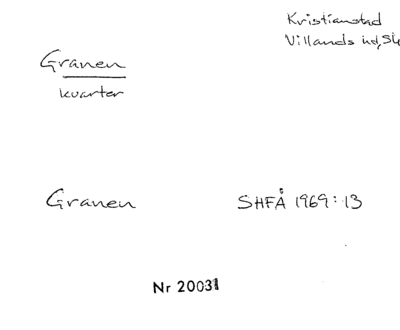 Kristianstad
Villands hd, Sk
Granen
kvarter
Granen SHFÅ 1969:13
Nr 20031